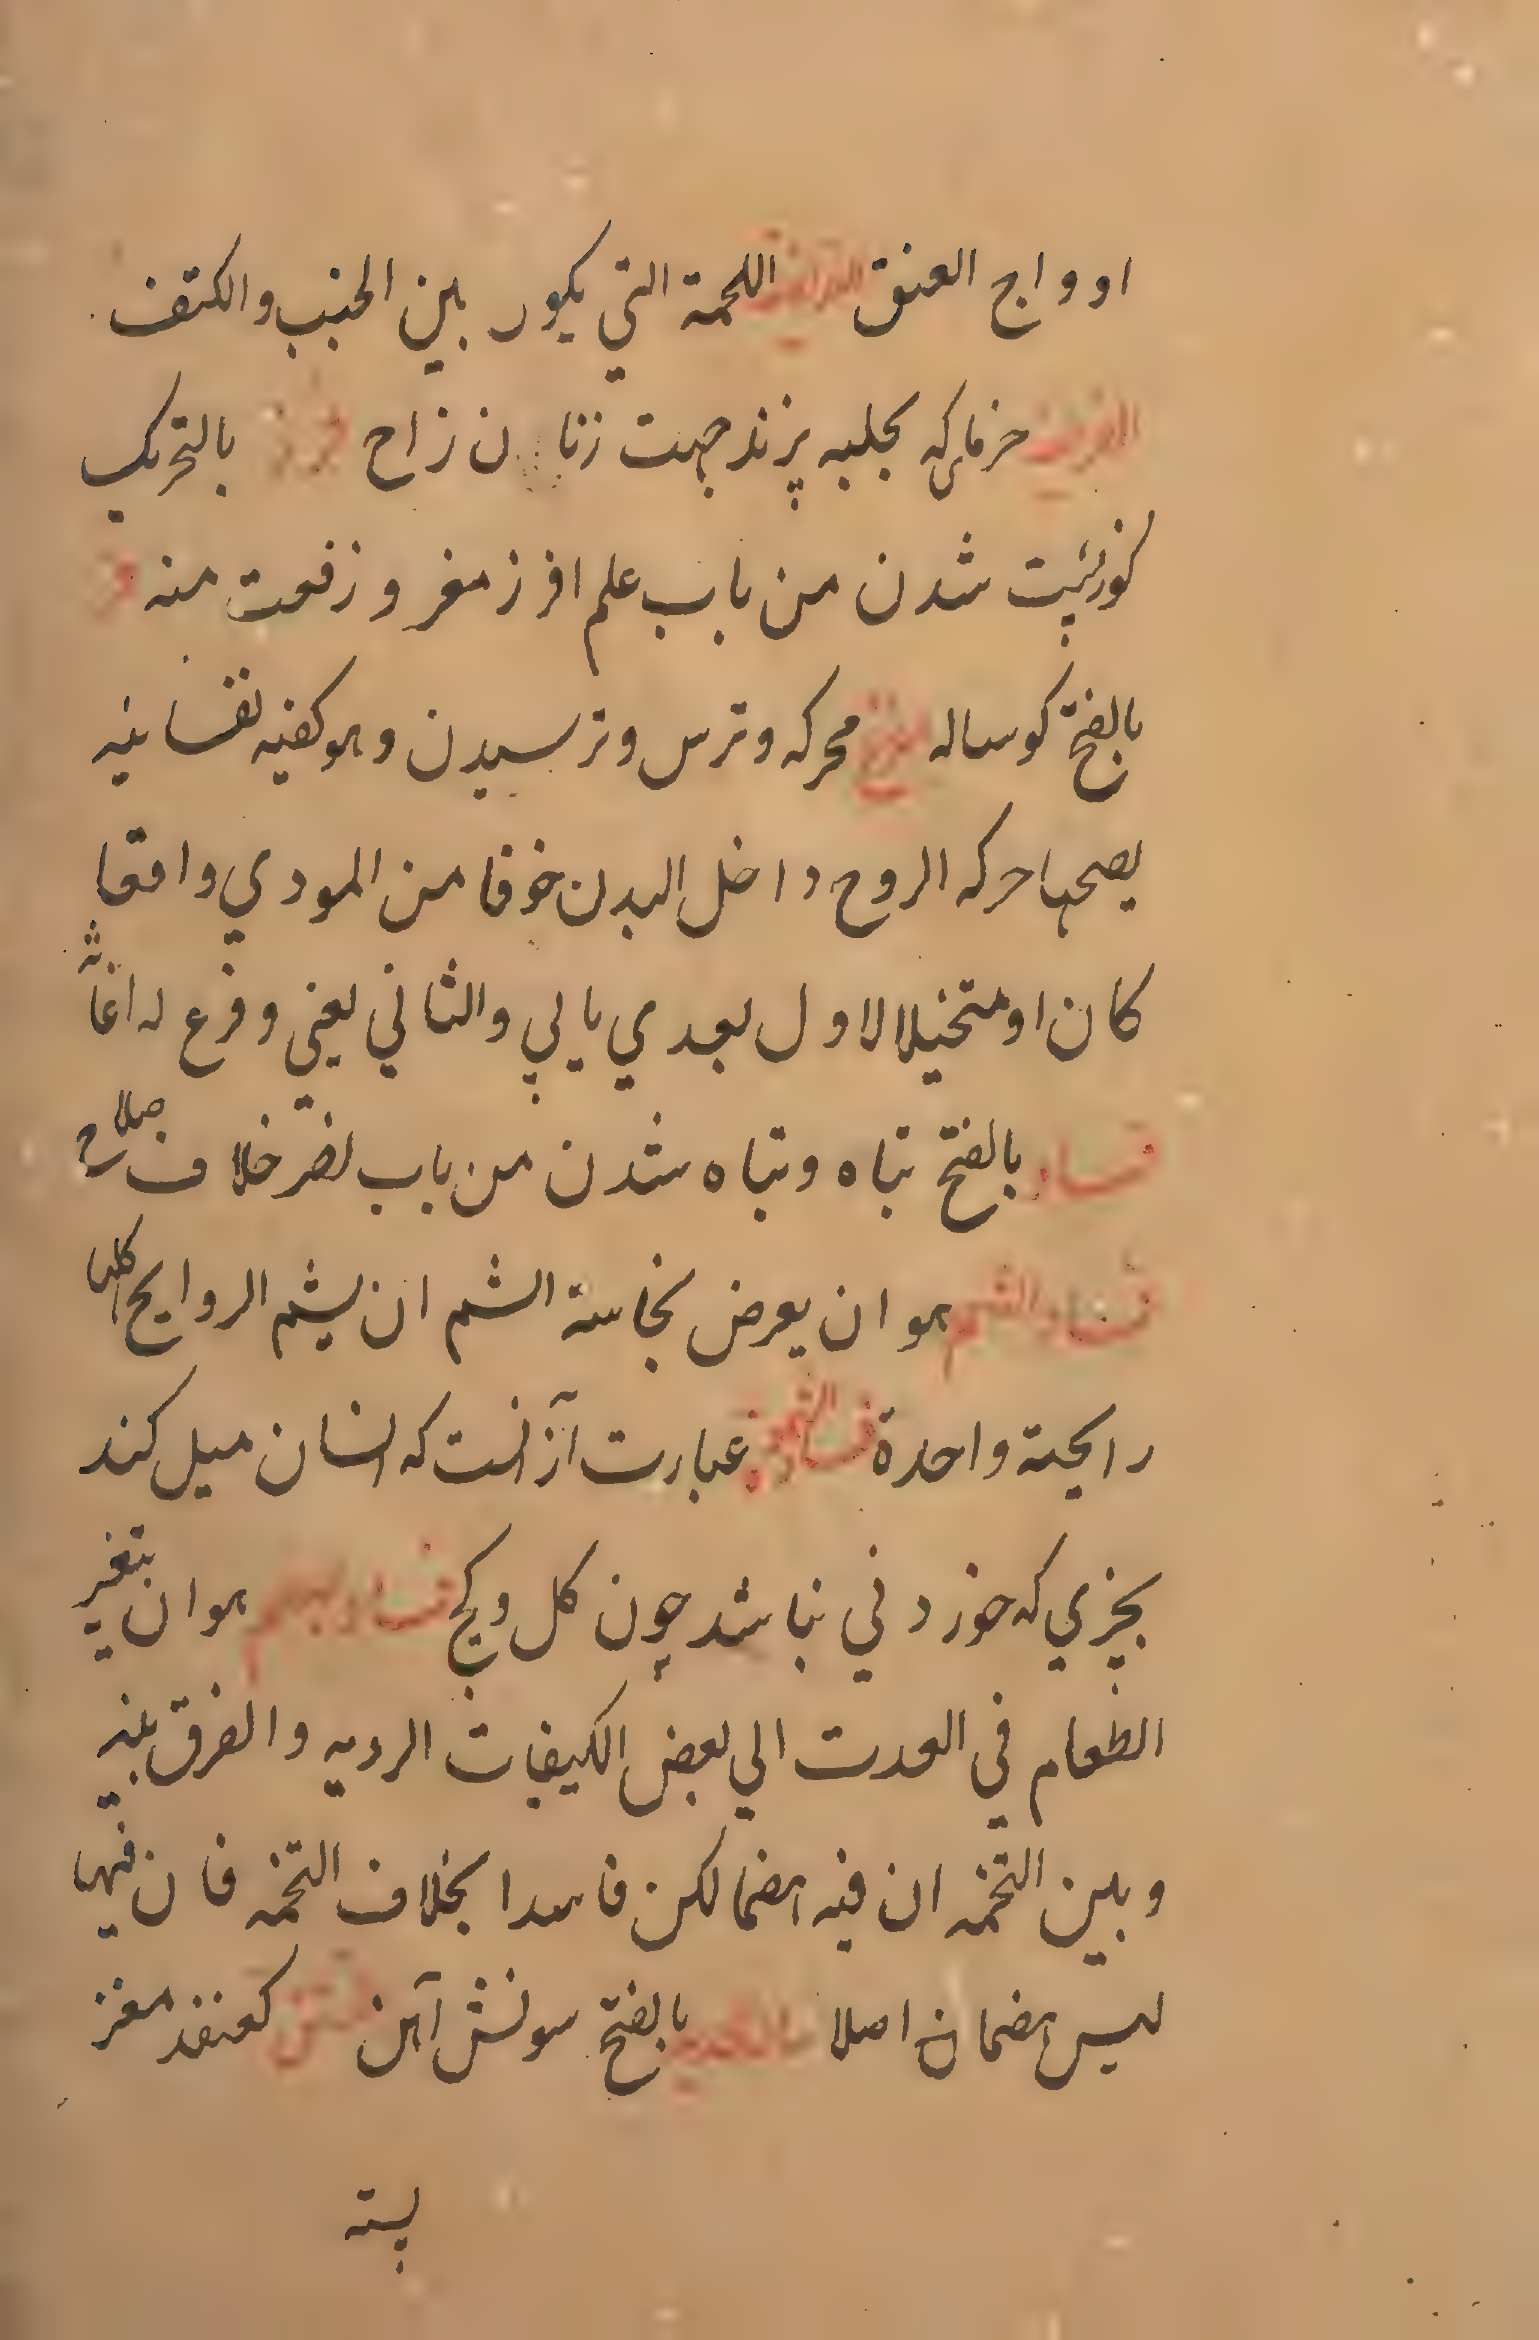 او واج العنق الفریصة اللحمة التي یکون بین الجنب والکتف
الفریقه خرمای که بحلبه پزند جهت زنان زاج فزر بالتحریک
کوزپشت شدن من باب علم افرز مفرو زفعت منه فز
بالفتح کوساله فزع محرکه وترس وترسیدن وهو کفیه نفسانیه
یصحبها حرکه الروح داخل البدن خوفا من المودي واقعا
کان او متخیلا الاول یعدي یالي والثاني یعني وفزع له اغاثه
فساد بالفتح تباه وتباه شدن من باب نصر خلاف صلاح
فساد الشم هو ان یعرض بحاسة الشم ان یشم الروایح کلها
رایحة واحدة فساد الشهوة عبارت ازانست که انسان میل کند
بچیزي که خوردني نباشد چون کل وکچ فساد الهضم هو ان یتغیر
الطعام في المعدت الي بعض الکیفیات الردیه والفرق بینه
وبین التخمه ان فیه هضما لکن فاسدا بخلاف التخمه فان فیها
لیس هضمان اصلا بالفتح سونش آهن فستق کعنفذ مغز
پسته